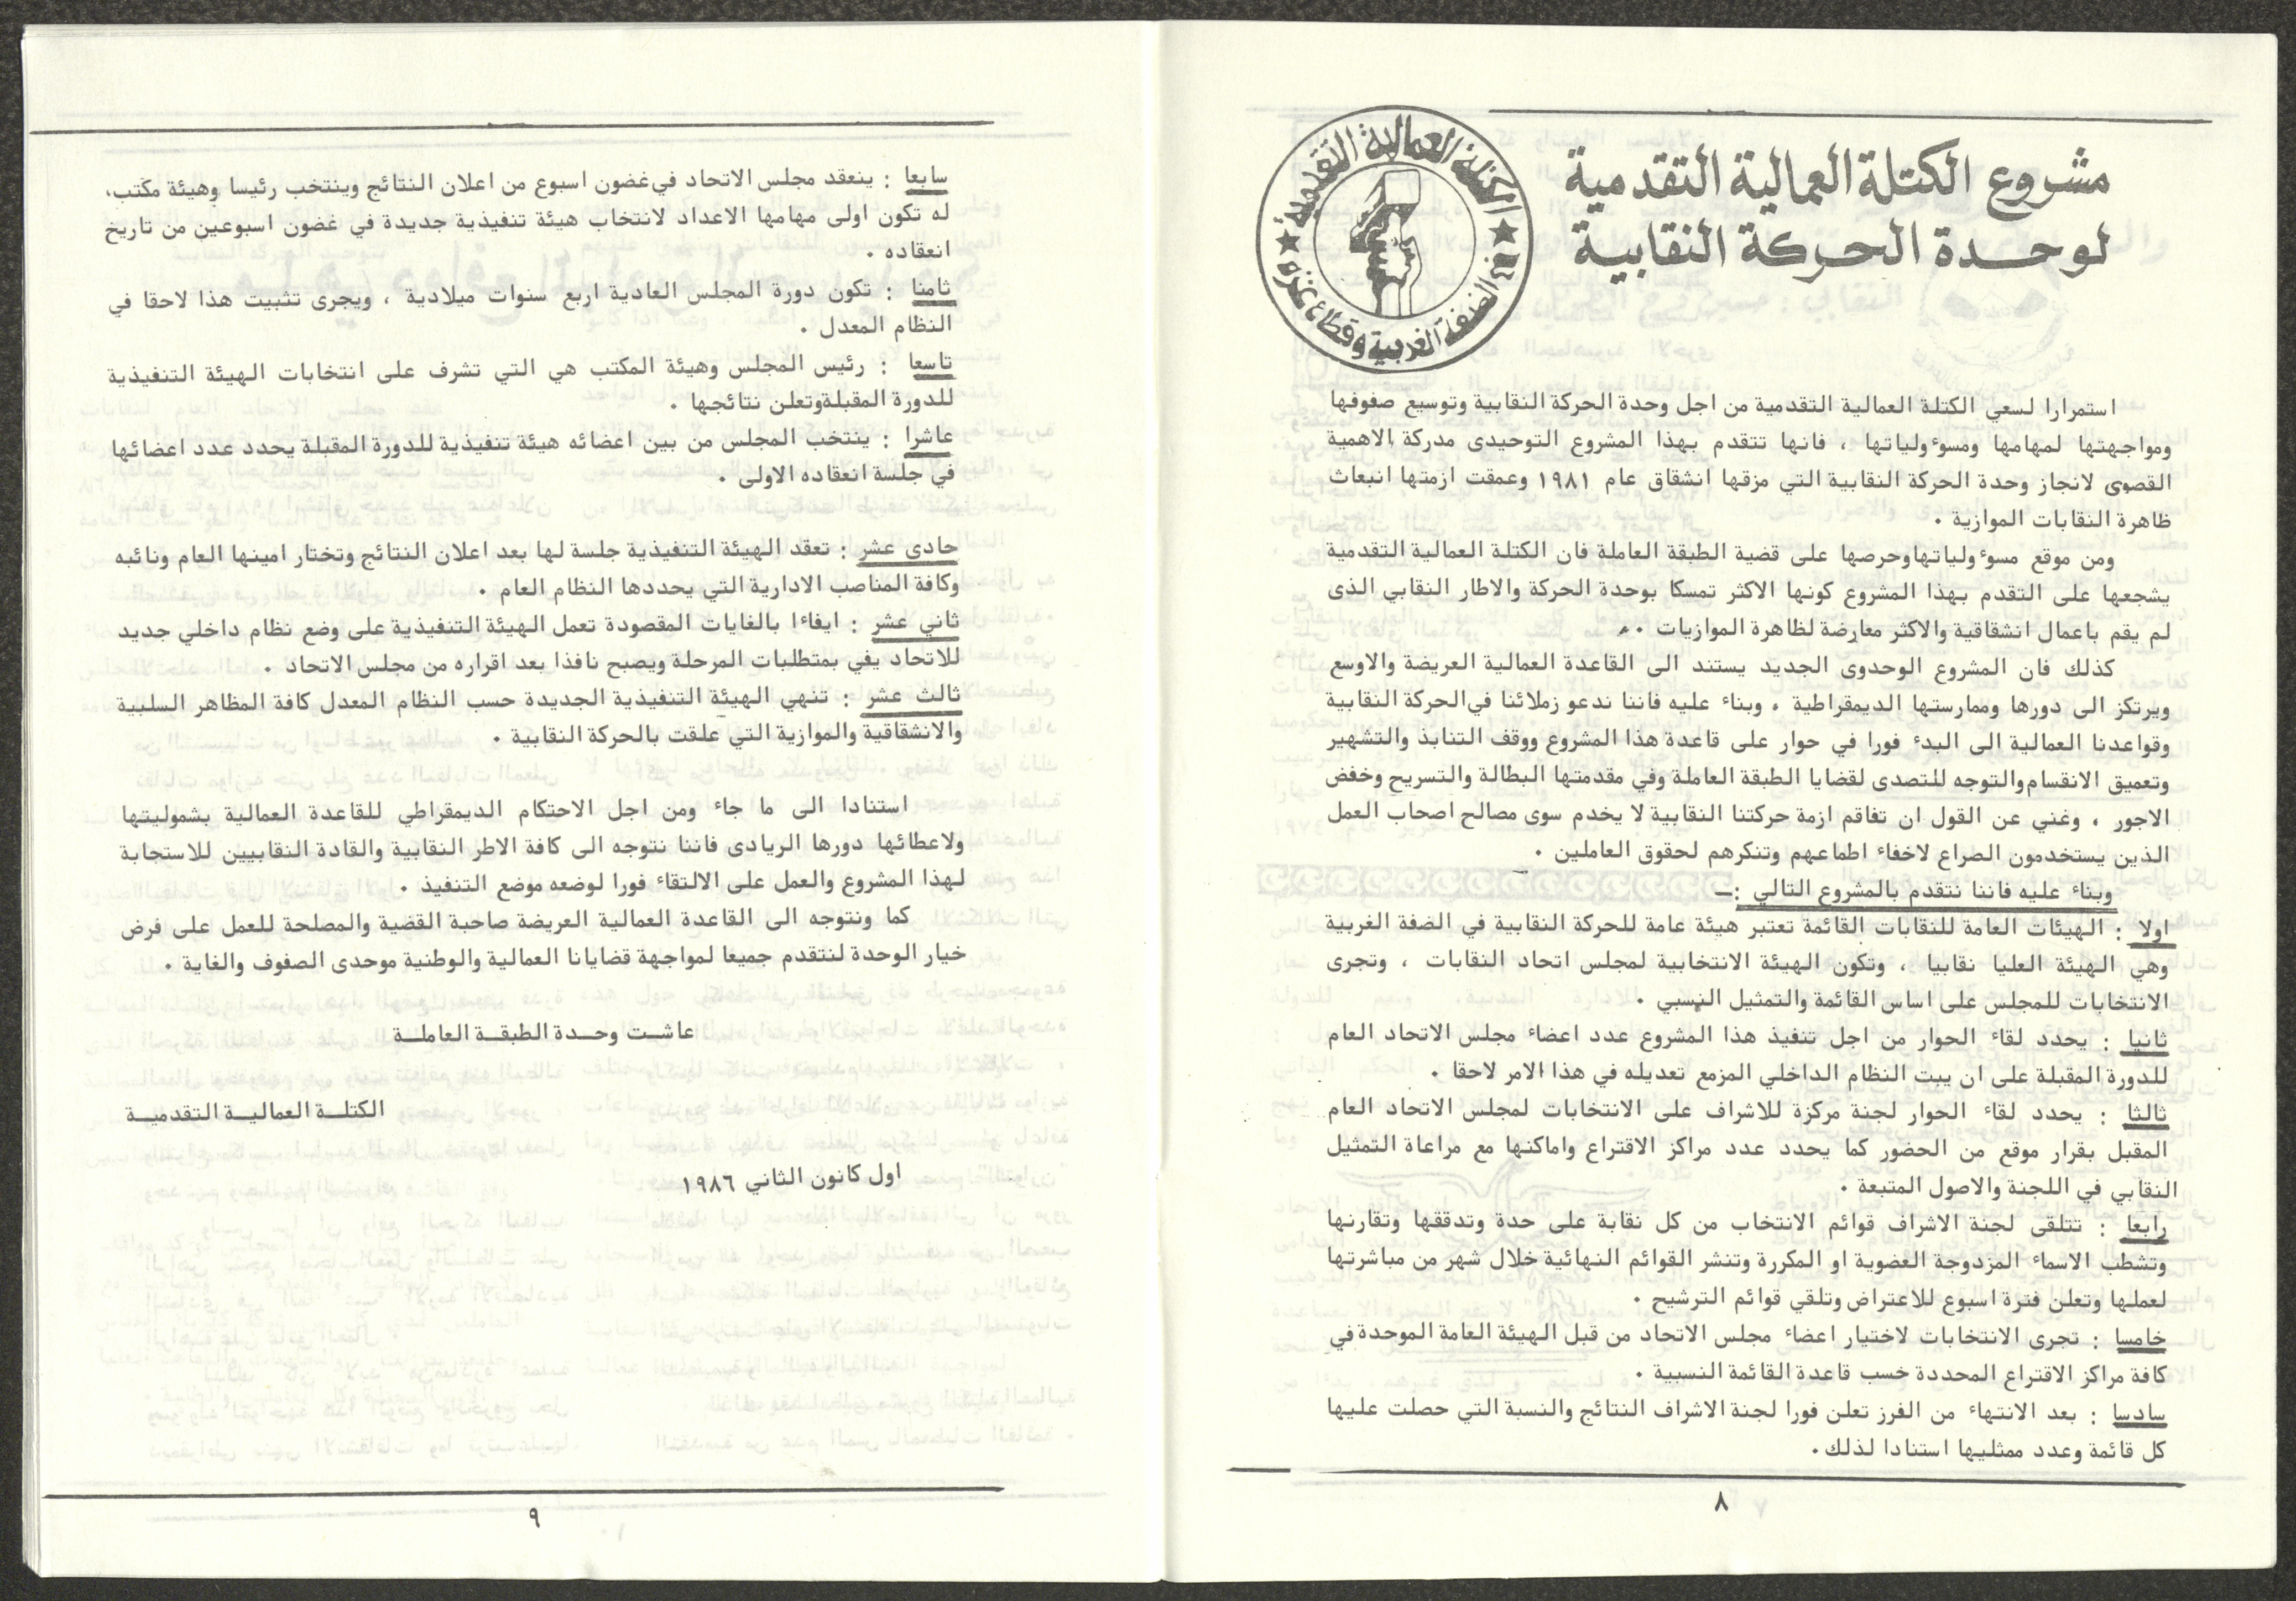 مشروع الكتلة العمالية التقدمية
لوحدة الحركة النقابية
الكتلة العمالية التقدمية
في الضفة الغربية وقطاع غزة
استمرارا لسعي الكتلة العمالية التقدمية من اجل وحدة الحركة النقابية وتوسيع صفوفها
ومواجهتها لمهامها ومسوءولياتها ، فانها تتقدم بهذا المشروع التوحيدى مدركة الاهمية
القصوى لانجاز وحدة الحركة النقابية التي مزقها انشقاق عام ١٩٨١ وعمقت ازمتها انبعاث
ظاهرة النقابات الموازية .
ومن موقع مسوءولياتها وحرصها على قضية الطبقة العاملة فان الكتلة العمالية التقدمية
يشجعها على التقدم بهذا المشروع كونها الاكثر تمسكا بوحدة الحركة والاطار النقابي الذى
لم يقم باعمال انشقاقية والاكثر معارضة لظاهرة الموازيات .
كذلك فان المشروع الوحدوى الجديد يستند الى القاعدة العمالية العريضة والاوسع
ويرتكز الى دورها وممارستها الديمقراطية . وبناء عليه فاننا ندعو زملائنا في الحركة النقابية
وقواعدنا العمالية الى البدء فورا في حوار على قاعدة هذا المشروع ووقف التنابذ والتشهير
وتعميق الانقسام والتوجه للتصدى لقضايا الطبقة العاملة وفي مقدمتها البطالة والتسريح وخفض
الاجور ، وغني عن القول ان تفاقم ازمة حركتنا النقابية لا يخدم سوى مصالح اصحاب العمل
الذين يستخدمون الصراع لاخفاء اطماعهم وتنكرهم لحقوق العاملين .
وبناء عليه فاننا نتقدم بالمشروع التالي :ـ
اولا : الهيئات العامة للنقابات القائمة تعتبر هيئة عامة للحركة النقابية في الضفة الغربية
وهي الهيئة العليا نقابيا ، وتكون الهيئة الانتخابية لمجلس اتحاد النقابات ، وتجرى
الانتخابات للمجلس على اساس القائمة والتمثيل النسبي .
ثانيا : يحدد لقاء الحوار من اجل تنفيذ هذا المشروع عدد اعضاء مجلس الاتحاد العام
للدورة المقبلة على ان يبت النظام الداخلي المزمع تعديله في هذا الامر لاحقا .
ثالثا : يحدد لقاء الحوار لجنة مركزة للاشراف على الانتخابات لمجلس الاتحاد العام
المقبل بقرار موقع من الحضور كما يحدد عدد مراكز الاقتراع واماكنها مع مراعاة التمثيل
النقابي في اللجنة والاصول المتبعة .
رابعا : تتلقى لجنة الاشراف قوائم الانتخاب من كل نقابة على حدة وتدققها وتقارنها
وتشطب الاسماء المزدوجة العضوية او المكررة وتنشر القوائم النهائية خلال شهر من مباشرتها
لعملها وتعلن فترة اسبوع للاعتراض وتلقي قوائم الترشيح .
خامسا : تجرى الانتخابات لاختيار اعضاء مجلس الاتحاد من قبل الهيئة العامة الموحدة في
كافة مراكز الاقتراع المحددة خسب قاعدة القائمة النسبية .
سادسا : بعد الانتهاء من الفرز تعلن فورا لجنة الاشراف النتائج والنسبة التي حصلت عليها
كل قائمة وعدد ممثليها استنادا لذلك .
٨
سابعا : ينعقد مجلس الاتحاد في غضون اسبوع من اعلان النتائج وينتخب رئيسا وهيئة مكتب،
له تكون اولى مهامها الاعداد لانتخاب هيئة تنفيذية جديدة في غضون اسبوعين من تاريخ
انعقاده .
ثامنا : تكون دورة المجلس العادية اربع سنوات ميلادية ، ويجرى تثبيت هذا لاحقا في
النظام المعدل .
تاسعا : رئيس المجلس وهيئة المكتب هي التي تشرف على انتخابات الهيئة التنفيذية
للدورة المقبلة وتعلن نتائجها .
عاشرا : ينتخب المجلس من بين اعضائه هيئة تنفيذية للدورة المقبلة يحدد عدد اعضائها
في جلسة انعقاده الاولى .
حادى عشر : تعقد الهيئة التنفيذية جلسة لها بعد اعلان النتائج وتختار امينها العام ونائبه
وكافة المناصب الادارية التي يحددها النظام العام .
ثاني عشر : ايفاءا بالغايات المقصودة تعمل الهيئة التنفيذية على وضع نظام داخلي جديد
للاتحاد يفي بمتطلبات المرحلة ويصبح نافذا بعد اقراره من مجلس الاتحاد .
ثالث عشر : تنهي الهيئة التنفيذية الجديدة حسب النظام المعدل كافة المظاهر السلبية
والانشقاقية والموازية التي علقت بالحركة النقابية .
استنادا الى ما جاء ومن اجل الاحتكام الديمقراطي للقاعدة العمالية بشموليتها
ولاعطائها دورها الريادى فاننا نتوجه الى كافة الاطر النقابية والقادة النقابيين للاستجابة
لهذا المشروع والعمل على الالتقاء فورا لوضعه موضع التنفيذ .
كما ونتوجه الى القاعدة العمالية العريضة صاحبة القضية والمصلحة للعمل على فرض
خيار الوحدة لنتقدم جميعا لمواجهة قضايانا العمالية والوطنية موحدى الصفوف والغاية .
عاشت وحدة الطبقة العاملة
الكتلة العمالية التقدمية
اول كانون الثاني ١٩٨٦
٩